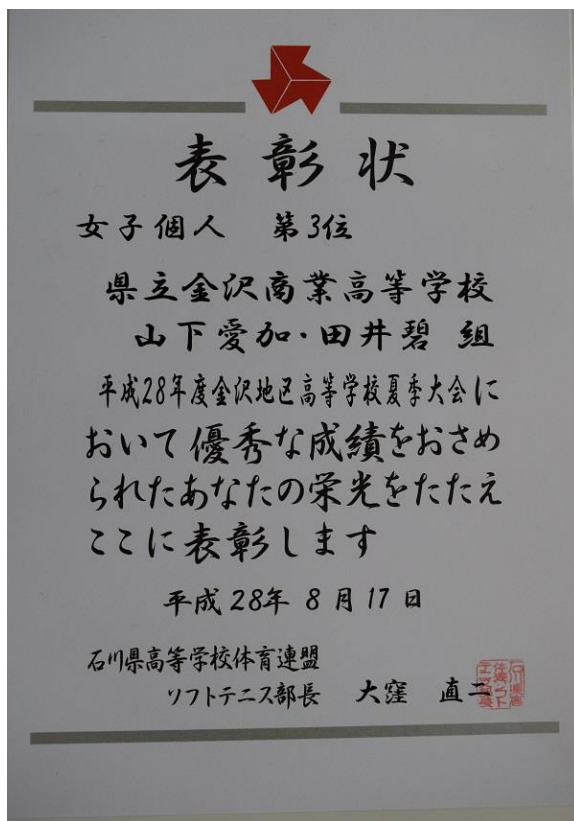 表彰状
女子個人 第3位
県立金沢商業高等学校
山下愛加・田井碧 組
平成28年度金沢地区高等学校夏季大会に
おいて優秀な成績をおさめ
られたあなたの栄光をたたえ
ここに表彰します
平成28年8月17日
石川県高等学校体育連盟
ソフトテニス部長 大窪 直二